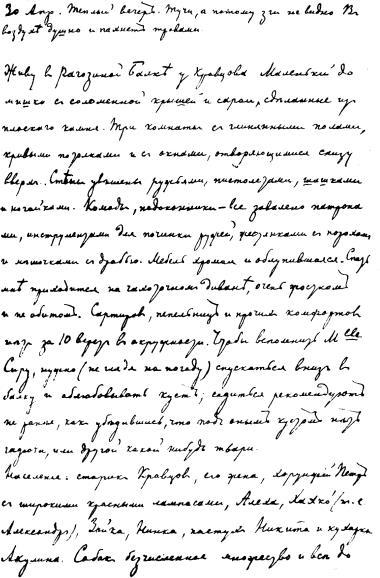 30 Апр. Теплый вечеръ. Тучи, а потому зги не видно. Въ
воздухѣ душно и пахнетъ травами.
Живу въ Рагозиной Балкѣ у Кравцова. Маленькій до
мишко съ соломенной крышей и сараи, сдѣланные изъ
плоскаго камня. Три комнаты съ глиняными полами,
кривыми потолками и съ окнами, отворяющимися снизу
вверхъ. Стѣны увѣшены ружьями, пистолетами, шашками
и ногайками. Комоды, подоконники — все завалено патрона
ми, инструментами для починки ружей, жестянками съ порохомъ
и мѣшочками съ дробью. Мебель хромая и облупившаяся. Спать
мнѣ приходится на чахоточномъ диванѣ, очень жесткомъ
и не обитомъ. Сортировъ, пепельницъ и прочихъ комфортовъ
нѣтъ за 10 верстъ въ окружности. Чтобы вспомнить M-lle
Сиру, нужно (не глядя на погоду) спускаться внизъ въ
балку и облюбовывать кустъ; садиться рекомендуютъ
не ранѣе, какъ убѣдившись, что подъ онымъ кустомъ нѣтъ
гадюки, или другой какой нибудь твари.
Населеніе: старикъ Кравцовъ, его жена, хорунжій Петръ
съ широкими красными лампасами, Алеха, Хахко (т. е.
Александръ), Зойка, Нинка, пастухъ Никита и кухарка
Акулина. Собакъ безчисленное множество и всѣ до